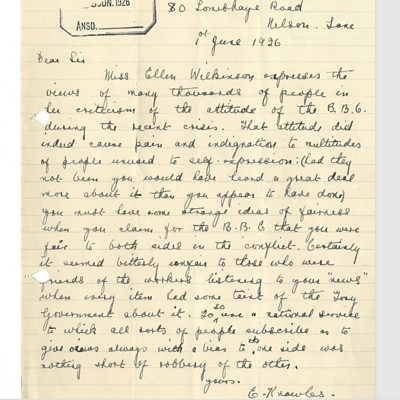 JUN. 1926
ANSD.
80 Lomeshaye Road
Nelson. Lanc
1st June 1926
Dear Sir
Miss Ellen Wilkinson expresses the
views of many thousands of people in
her criticism of the attitude of the B.B.C.
during the recent crisis. That attitude did
indeed cause pain and indignation to multitudes
of people unused to self-expression: (had they
not been you would have heard a great deal
more about it than you appear to have done)
you must have some strange ideas of fairness
when you claim for the B.B.C that you were
fair to both sides in the conflict. Certainly
it seemed bitterly unfair to those who were
friends of the workers listening to your "news"
when every item had some taint of the Tory
Government about it. To so use a national service
to which all sorts of people subscribe as to
give views always with a bias to the one side was
nothing short of robbery of the other.
yours.
E. Knowles.